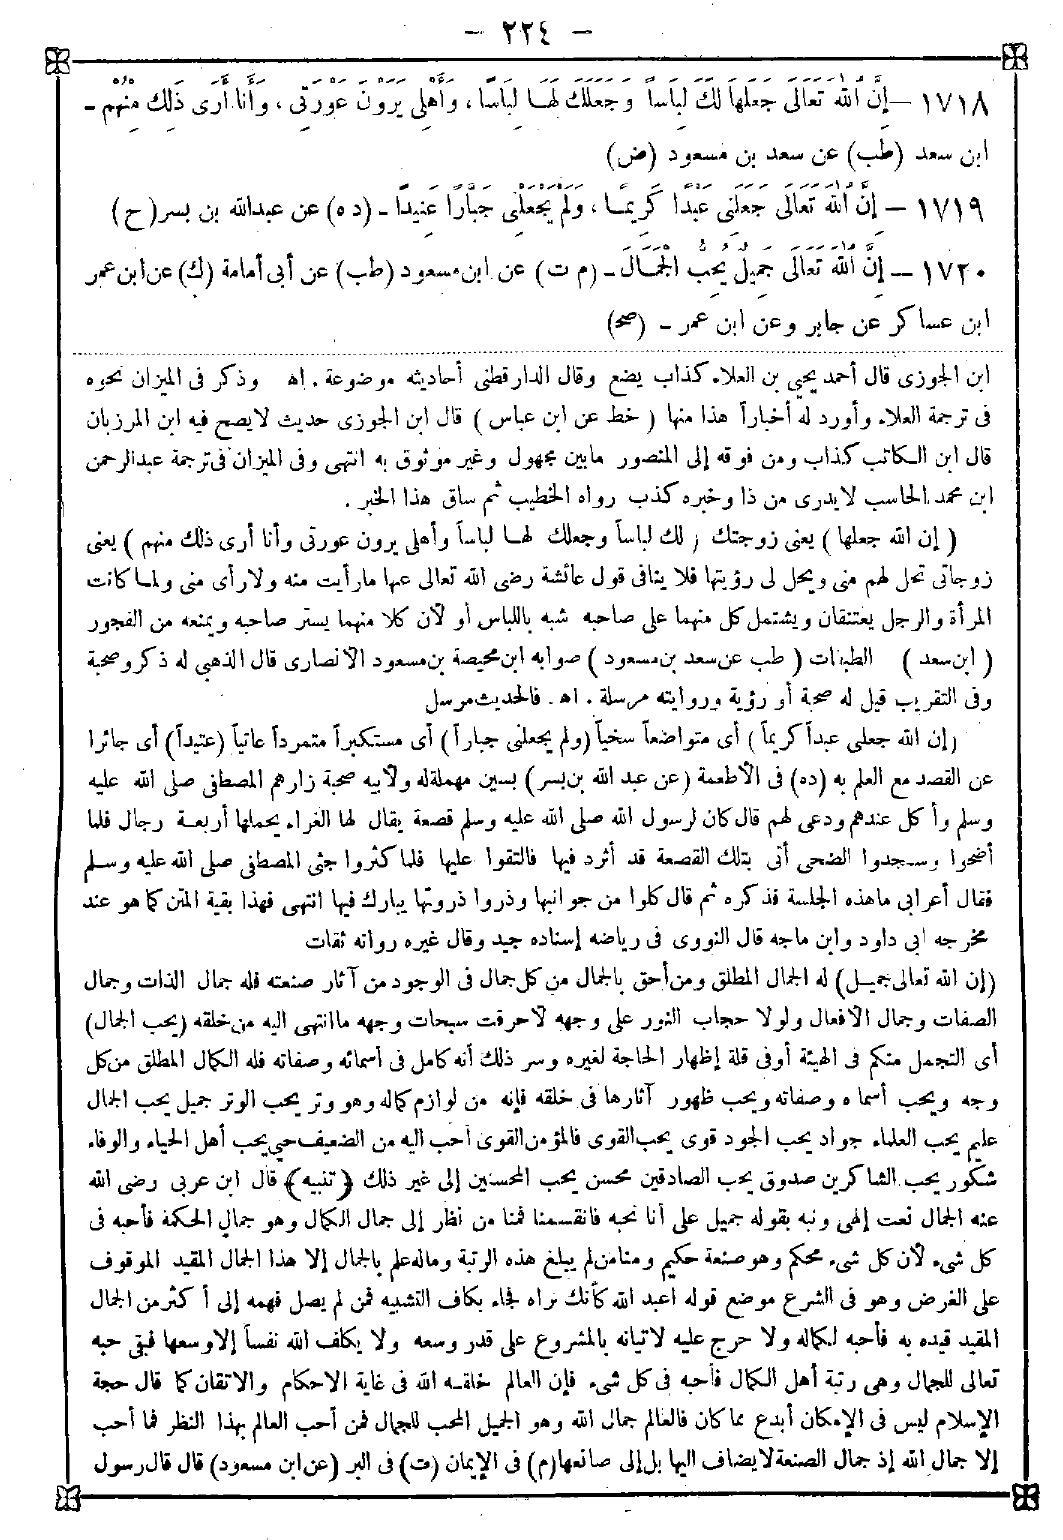 - ٢٢٤ -
١٧١٨ - إِنَّ اللهَ تَعَالَى جَعَلَهَا لَكَ لِبَاساً وَجَعَلَكَ لَهَا لِبَاسًا، وَأَهْلِي يَرَوْنَ عَوْرَتِي، وَأَنَا أَرَى ذَلِكَ مِنْهُمْ -
ابن سعد (طب) عن سعد بن مسعود (ض)
١٧١٩ - إِنَّ اللهَ تَعَالَى جَعَلَنِي عَبْدًا كَرِيمًا، وَلَمْ يَجْعَلْنِي جَبَّارًا عَنِيدًا - (د ه) عن عبدالله بن بسر (ح)
١٧٢٠ - إِنَّ اللهَ تَعَالَى جَمِيلٌ يُحِبُّ الْجَمَالَ - (م ت) عن ابن مسعود (طب) عن أبى أمامة (ك) عن ابن عمر
ابن عساكر عن جابر وعن ابن عمر - (صح)
ابن الجوزى قال أحمد يحيى بن العلاء كذاب يضع وقال الدارقطنى أحاديثه موضوعة . اهـ وذكر فى الميزان نحوه
فى ترجمة العلاء وأورد له أخباراً هذا منها (خط عن ابن عباس) قال ابن الجوزى حديث لا يصح فيه ابن المرزبان
قال ابن الكاتب كذاب ومن فوقه إلى المنصور مابين مجهول وغير موثوق به انتهى وفى الميزان فى ترجمة عبدالرحمن
ابن محمد الحاسب لا يدرى من ذا وخبره كذب رواه الخطيب ثم ساق هذا الخبر .
(إن الله جعلها) يعنى زوجتك (لك لباساً وجعلك لهـا لباساً وأهلى يرون عورتى وأنا أرى ذلك منهم) يعنى
زوجاتى تحل لهم منى ويحل لى رؤيتها فلا ينافى قول عائشة رضى الله تعالى عنها مارأيت منه ولا رأى منى ولما كانت
المرأة والرجل يعتنقان ويشتمل كل منهما على صاحبه شبه باللباس أو لأن كلا منهما يستر صاحبه ويمنعه من الفجور
(ابن سعد) الطبقات (طب عن سعد بن مسعود) صوابه ابن محيصة بن مسعود الأنصارى قال الذهبى له ذكر وصحبة
وفى التقريب قيل له صحبة أو رؤية وروايته مرسلة . اهـ. فالحديث مرسل
(إن الله جعلنى عبداً كريماً) أى متواضعاً سخياً (ولم يجعلنى جباراً) أى مستكبراً متمرداً عاتياً (عنيداً) أى جائرا
عن القصد مع العلم به (ده) فى الأطعمة (عن عبد الله بن بسر) بسين مهملة له ولأبيه صحبة زارهم المصطفى صلى الله عليه
وسلم وأكل عندهم ودعى لهم قال كان لرسول الله صلى الله عليه وسلم قصعة يقال لها الغراء يحملها أربعة رجال فلما
أضحوا وسجدوا الضحى أتى بتلك القصعة قد أثرد فيها فالتفوا عليها فلما كثروا جثى المصطفى صلى الله عليه وسلم
فقال أعرابى ماهذه الجلسة فذكره ثم قال كلوا من جوانبها وذروا ذروتها يبارك فيها انتهى فهذا بقية المتن كما هو عند
مخرجه ابى داود وابن ماجه قال النووى فى رياضه إسناده جيد وقال غيره رواته ثقات
(إن الله تعالى جميل) له الجمال المطلق ومن أحق بالجمال من كل جمال فى الوجود من آثار صنعته فله جمال الذات وجمال
الصفات وجمال الأفعال ولولا حجاب النور على وجهه لأحرقت سبحات وجهه ما انتهى اليه من خلقه (يحب الجمال)
أى التجمل منكم فى الهيئة أوفى قلة إظهار الحاجة لغيره وسر ذلك أنه كامل فى أسمائه وصفاته فله الكمال المطلق من كل
وجه ويحب أسماءه وصفاته ويحب ظهور آثارها فى خلقه فإنه من لوازم كماله وهو وتر يحب الوتر جميل يحب الجمال
عليم يحب العلماء جواد يحب الجود قوى يحب القوى فالمؤمن القوى أحب اليه من الضعيف حيى يحب أهل الحياء والوفاء
شكور يحب الشاكرين صدوق يحب الصادقين محسن يحب المحسنين إلى غير ذلك (تنبيه) قال ابن عربى رضى الله
عنه الجمال نعت إلهى ونبه بقوله جميل على أنا نحبه فانقسمنا فمنا من نظر إلى جمال الكمال وهو جمال الحكمة فأحبه فى
كل شىء لأن كل شىء محكم وهو صنعة حكيم ومنا من لم يبلغ هذه الرتبة وماله علم بالجمال إلا هذا الجمال المقيد الموقوف
على الغرض وهو فى الشرع موضع قوله اعبد الله كأنك تراه فجاء بكاف التشبيه فمن لم يصل فهمه إلى أكثر من الجمال
المقيد قيده به فأحبه لكماله ولا حرج عليه لاتيانه بالمشروع على قدر وسعه ولا يكلف الله نفساً إلا وسعها فبقى حبه
تعالى للجمال وهى رتبة أهل الكمال فأحبه فى كل شىء فإن العالم خلقه الله فى غاية الاحكام والاتقان كما قال حجة
الإسلام ليس فى الإمكان أبدع مما كان فالعالم جمال الله وهو الجميل المحب للجمال فمن أحب العالم بهذا النظر فما أحب
إلا جمال الله إذ جمال الصنعة لا يضاف اليها بل إلى صانعها (م) فى الإيمان (ت) فى البر (عن ابن مسعود) قال قال رسول